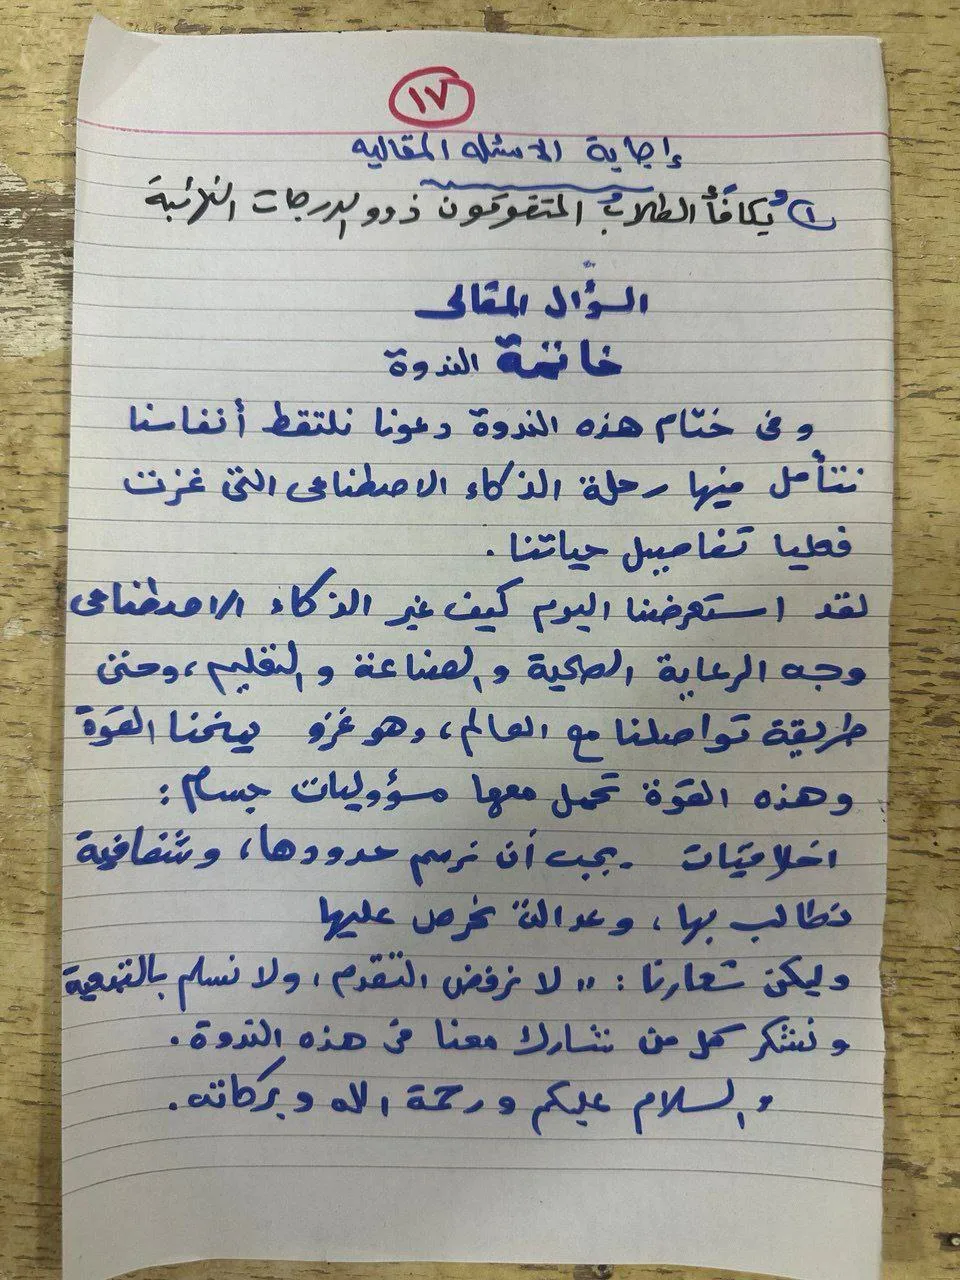 ١٧
إجابة الاسئله المقاليه
١) يُكافَأ الطلابُ المتفوقون ذوو الدرجات النهائية
السؤال المقالى
خاتمة الندوة
وفى ختام هذه الندوة دعونا نلتقط أنفاسنا
نتأمل فيها رحلة الذكاء الاصطناعى التى غزت
فعليا تفاصيل حياتنا .
لقد استعرضنا اليوم كيف غير الذكاء الاصطناعى
وجه الرعاية الصحية والصناعة والتعليم ، وحتى
طريقة تواصلنا مع العالم ، وهو غزو يمنحنا القوة
وهذه القوة تحمل معها مسؤوليات جسام :
اخلاقيات يجب أن نرسم حدودها ، وشفافية
نطالب بها ، وعدالة نحرص عليها
وليكن شعارنا : " لا نرفض التقدم ، ولا نسلم بالتبعية
ونشكر كل من شارك معنا فى هذه الندوة .
والسلام عليكم ورحمة الله وبركاته .